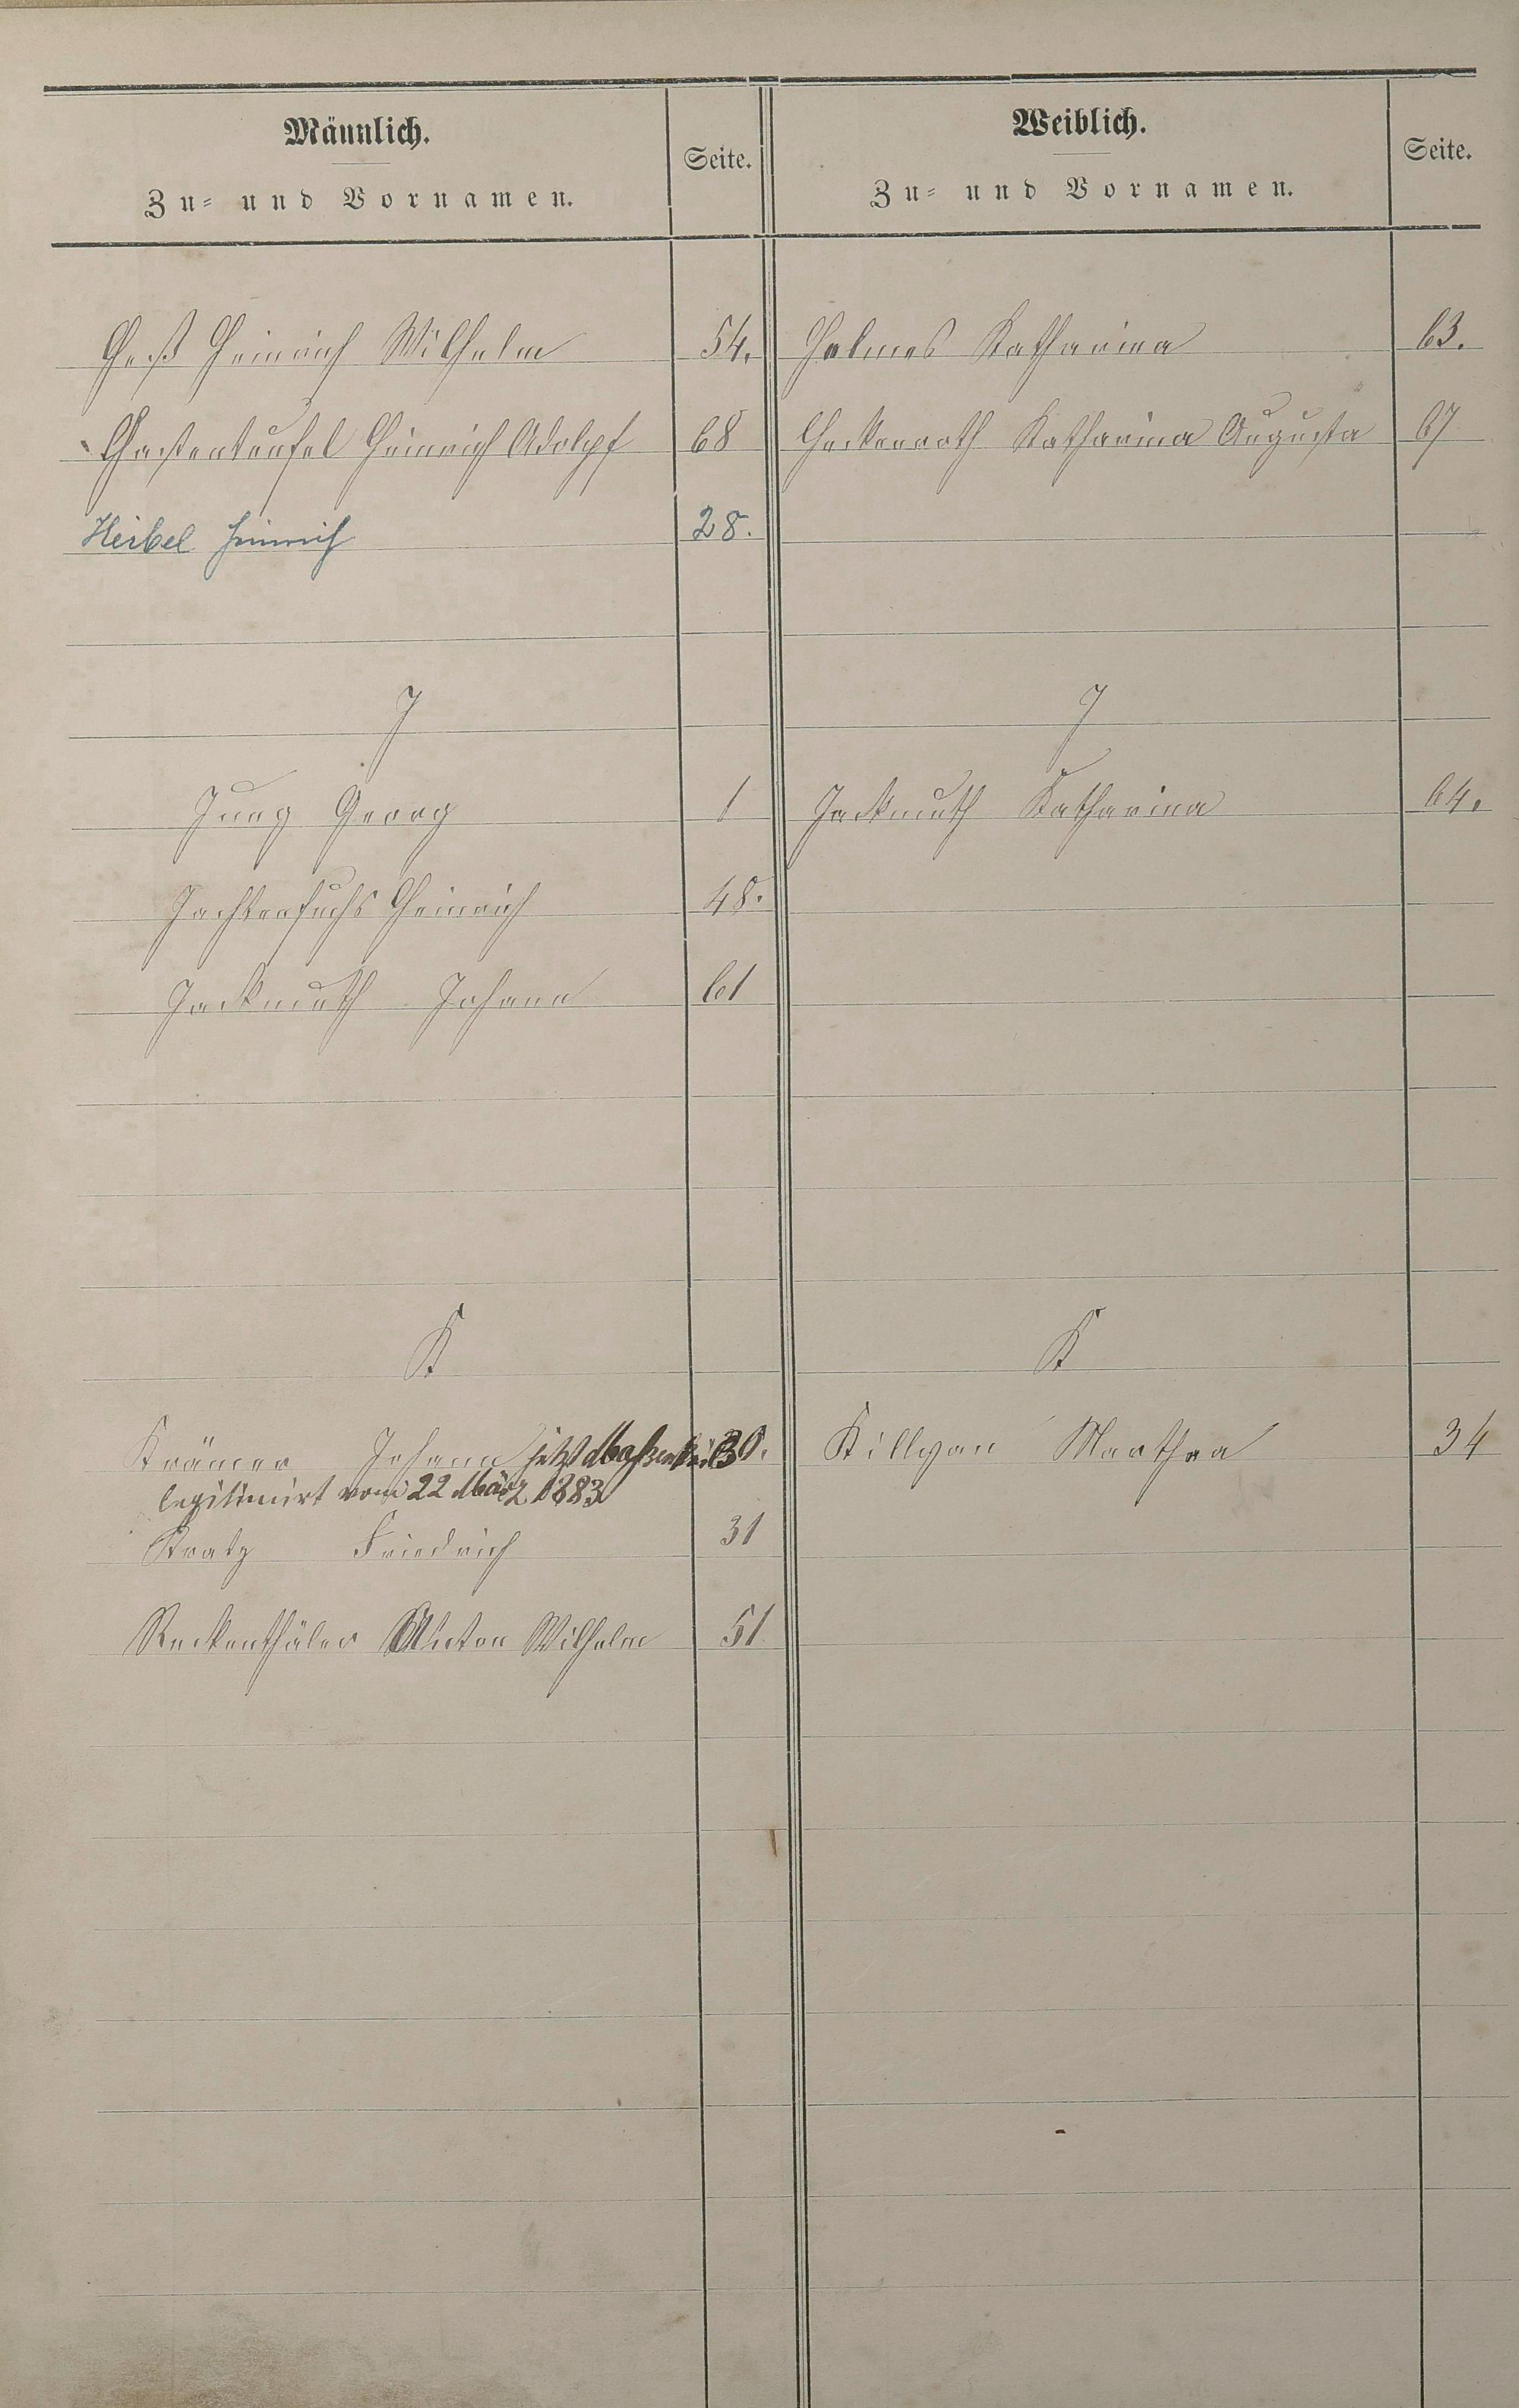 Männlich.
Zu- und Vornamen.
Seite.
Weiblich.
Zu- und Vornamen.
Seite.
Heß Heinrich Wilhelm 54. Helmes Katharina 63.
Heinrich Adolph 68 Heckenroth Katharina Augusta 67
Herbel Heinrich 28.
J J
Jung Georg 1 Jackmuth Katharina 64.
Jachtenfuchs Heinrich 48.
Jackmuth Johann 61
K K
Krämer Johann jetzt 30. Killgan Martha 34
legitimirt vom 22 März 1883
Kratz Friedrich 31
Reckenthäler Anton Wilhelm 51